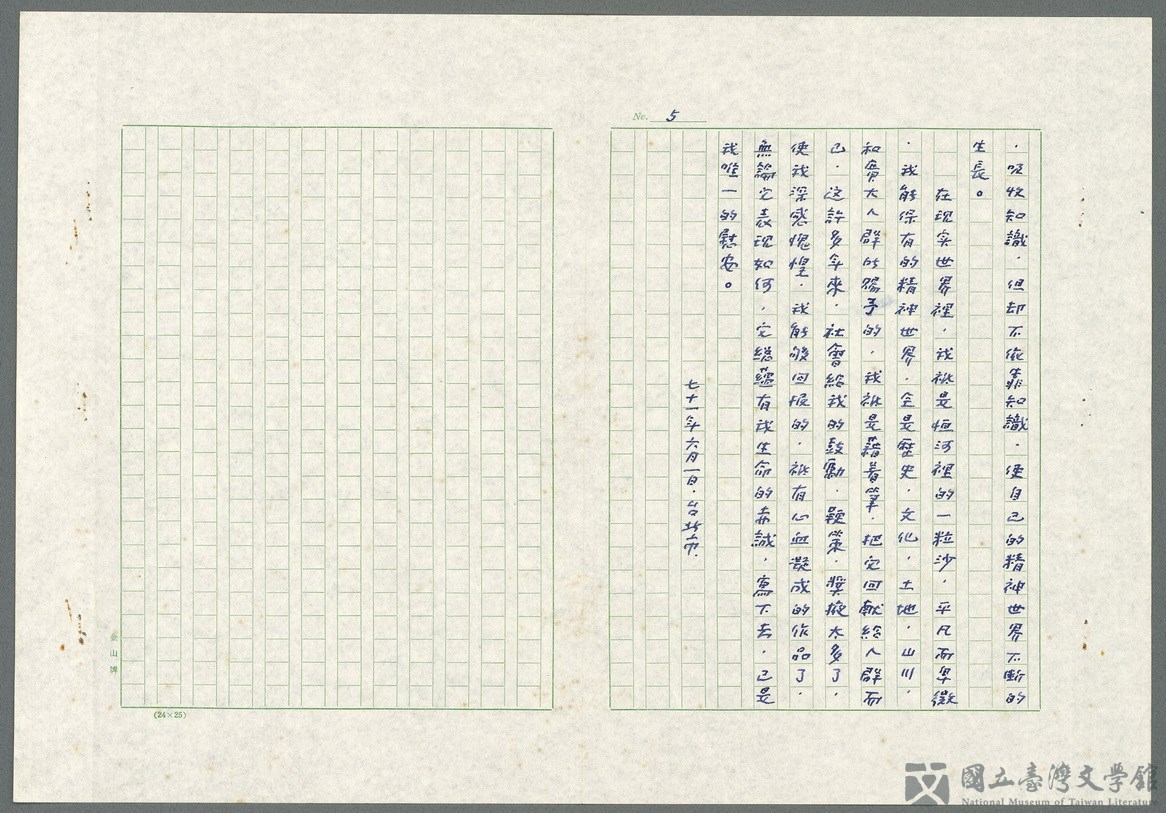 No. 5
．吸收知識．但却不做非知識．使自己的精神世界不断的
生長。
在现实世界裡．我祇是恒河裡的一粒沙．平凡而卑微
．我能保有的精神世界．全是歷史．文化．土地．山川．
和廣大人群所賜予的．我祇是藉着筆．把它回献給人群而
已．这許多年來．社會給我的鼓勵．鞭策．獎掖太多了．
使我深感愧惶．我能够回报的．祇有心血凝成的作品了．
無論它表现如何．它總蘊有我生命的赤誠．寫下去．已是
我唯一的慰安。
七十一年六月一日．台北市．
金山牌
(24×25)
國立臺灣文學館
National Museum of Taiwan Literature